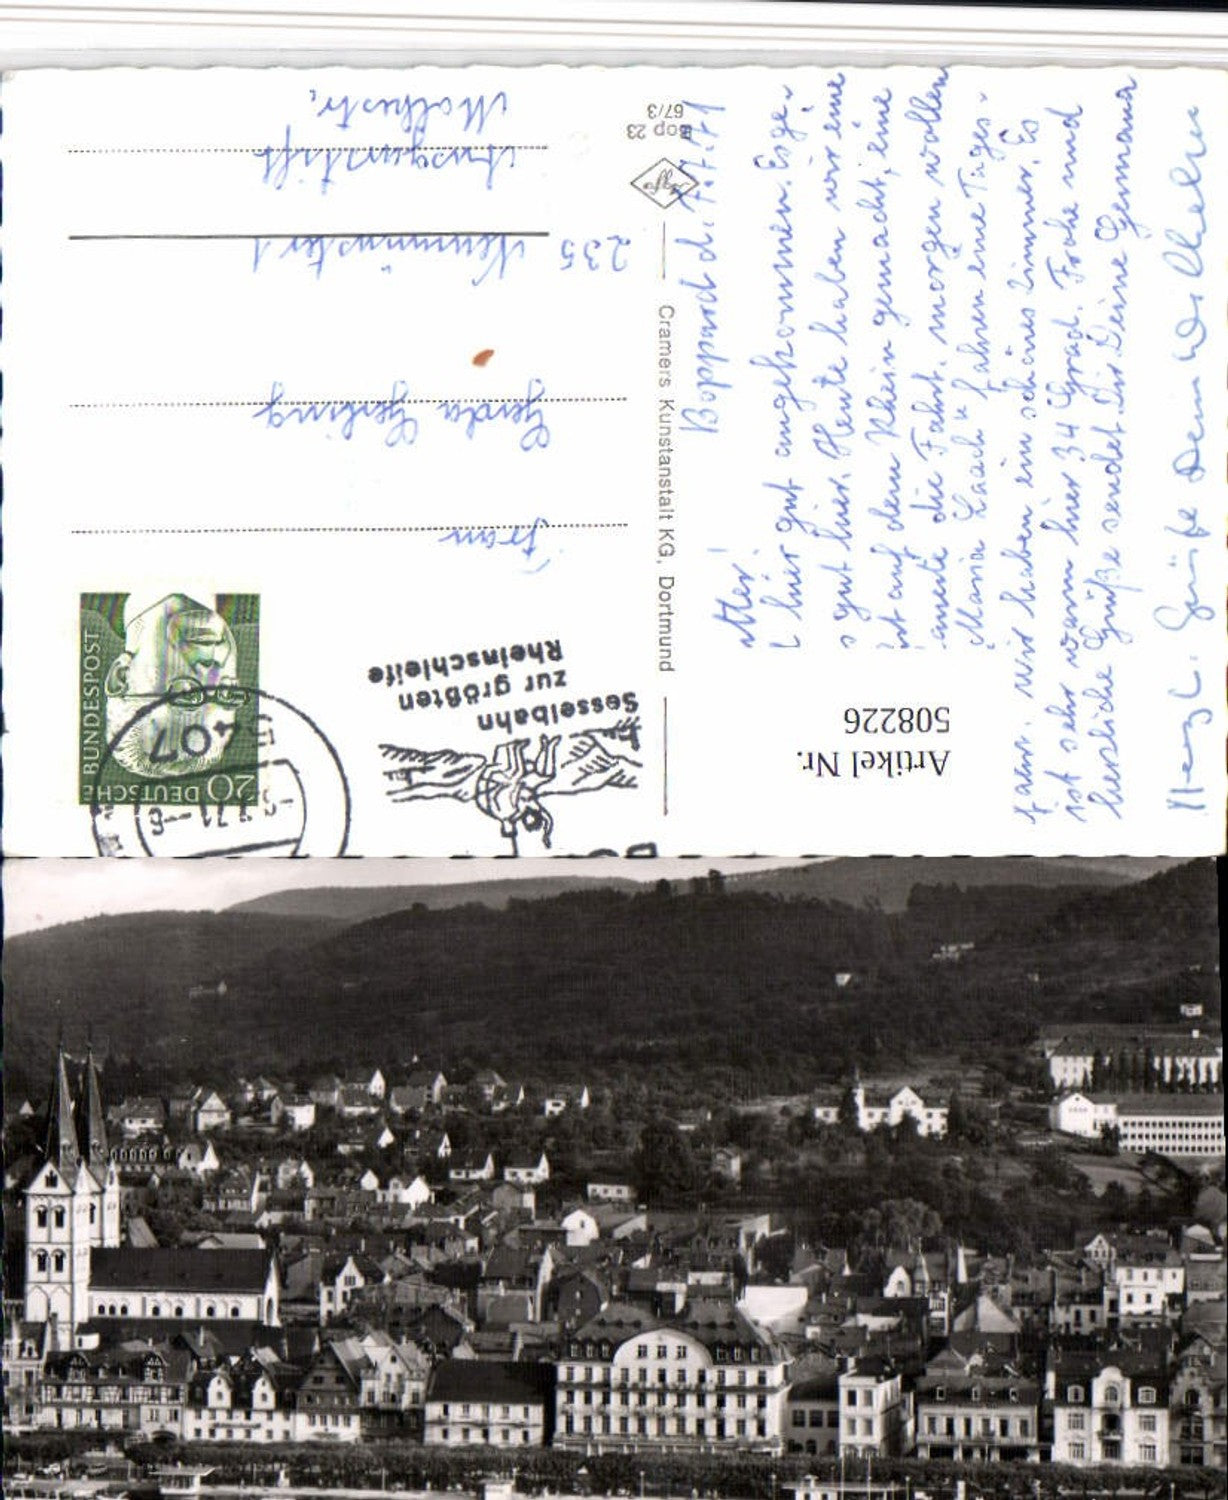 Boppard d. 7.7.71
hier gut angekommen. Es ge-
gut hier. Heute haben wir eine
auf dem Rhein gemacht, eine
die Fahrt. morgen wollen
Maria Laach u fahren eine Tages-
fahrt. wir haben ein schönes Zimmer. Es
ist sehr warm hier 34 Grad. Frohe und
herzliche Grüße sendet Dir Deine Germana
Herzl. Grüße Dein Wilhelm
Artikel Nr.
508226
Bop 23
67/3
Agfa
Cramers Kunstanstalt KG, Dortmund
Sesselbahn
zur größten
Rheinschleife
DEUTSCHE
BUNDESPOST
20
5407
Frau
Gerda Gerling
235 Neumünster 1